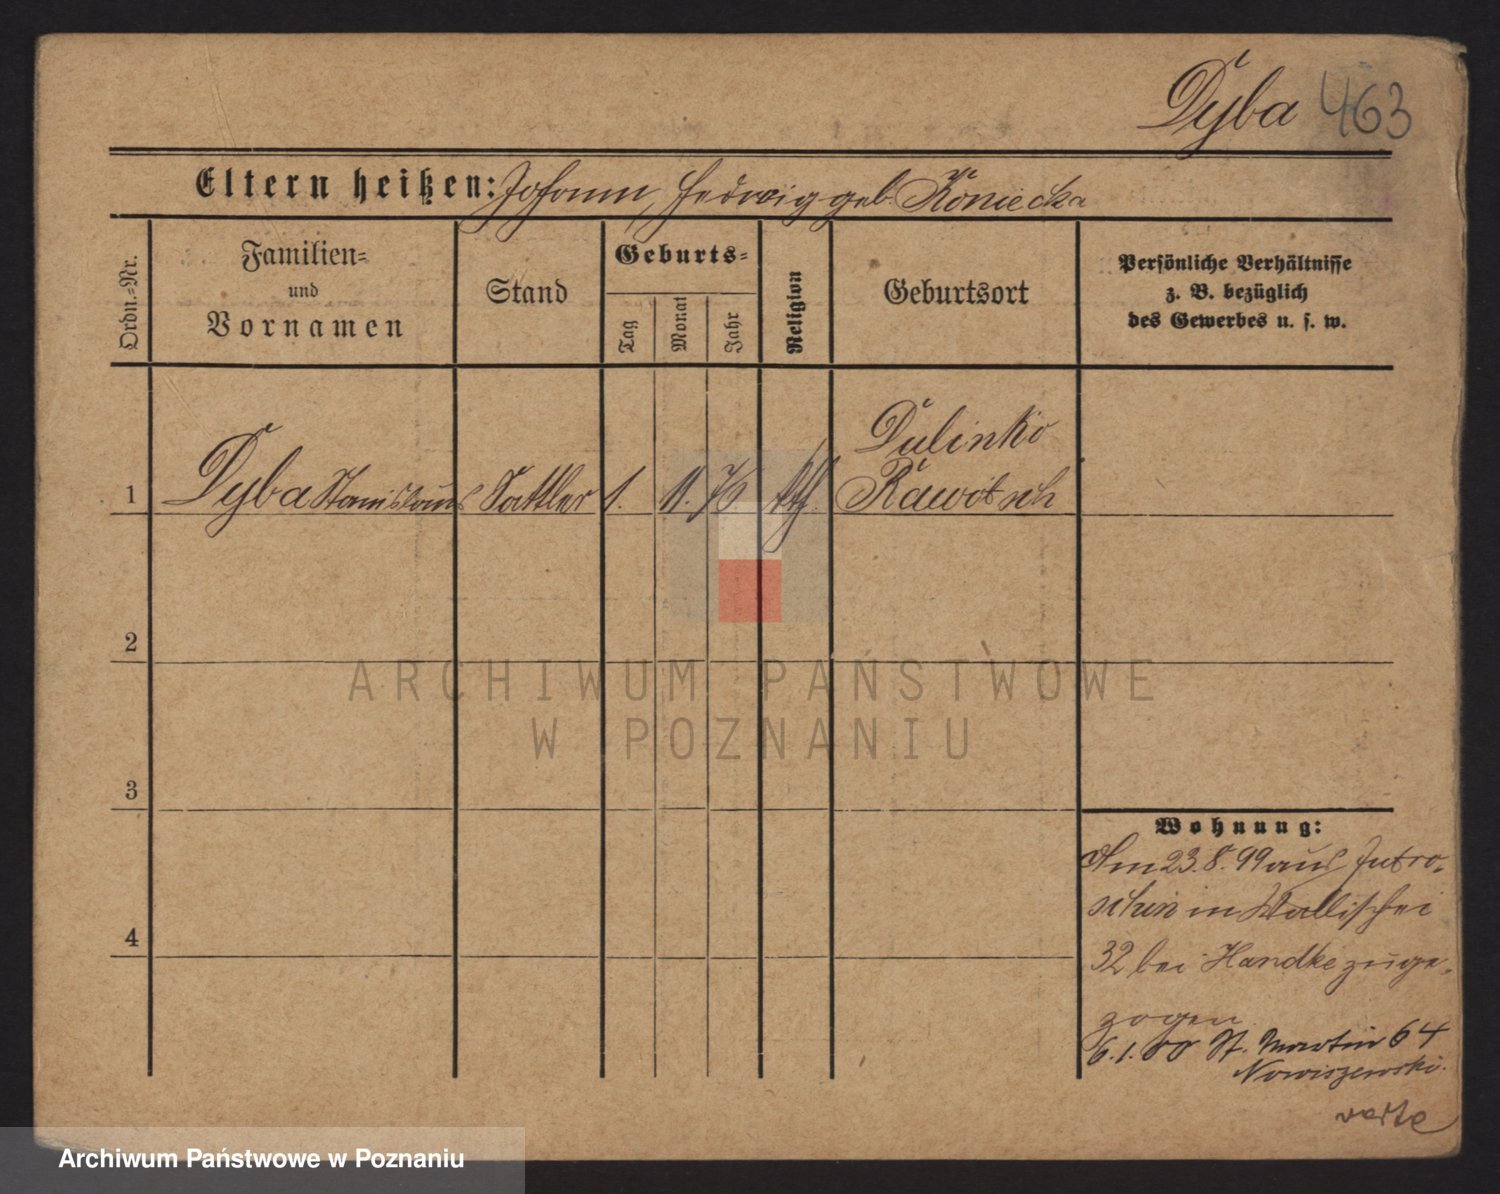 Dyba 463
Eltern heißen: Johann, Hedwig geb. Koniecka
Ordn.-Nr.
Familien-
und
Vornamen
Stand
Geburts-
Tag
Monat
Jahr
Religion
Geburtsort
Persönliche Verhältnisse
z. B. bezüglich
des Gewerbes u. s. w.
Dulinko
1 Dyba Stanislaus Sattler 1. 11. 76 kth. Rawitsch
2
3
4
Wohnung:
Am 23.8.99 aus Jutro-
schin in Wallischei
32 bei Handke zuge-
zogen
6.1.00 St. Martin 64
Nowiszewski.
verte
ARCHIWUM PAŃSTWOWE
W POZNANIU
Archiwum Państwowe w Poznaniu